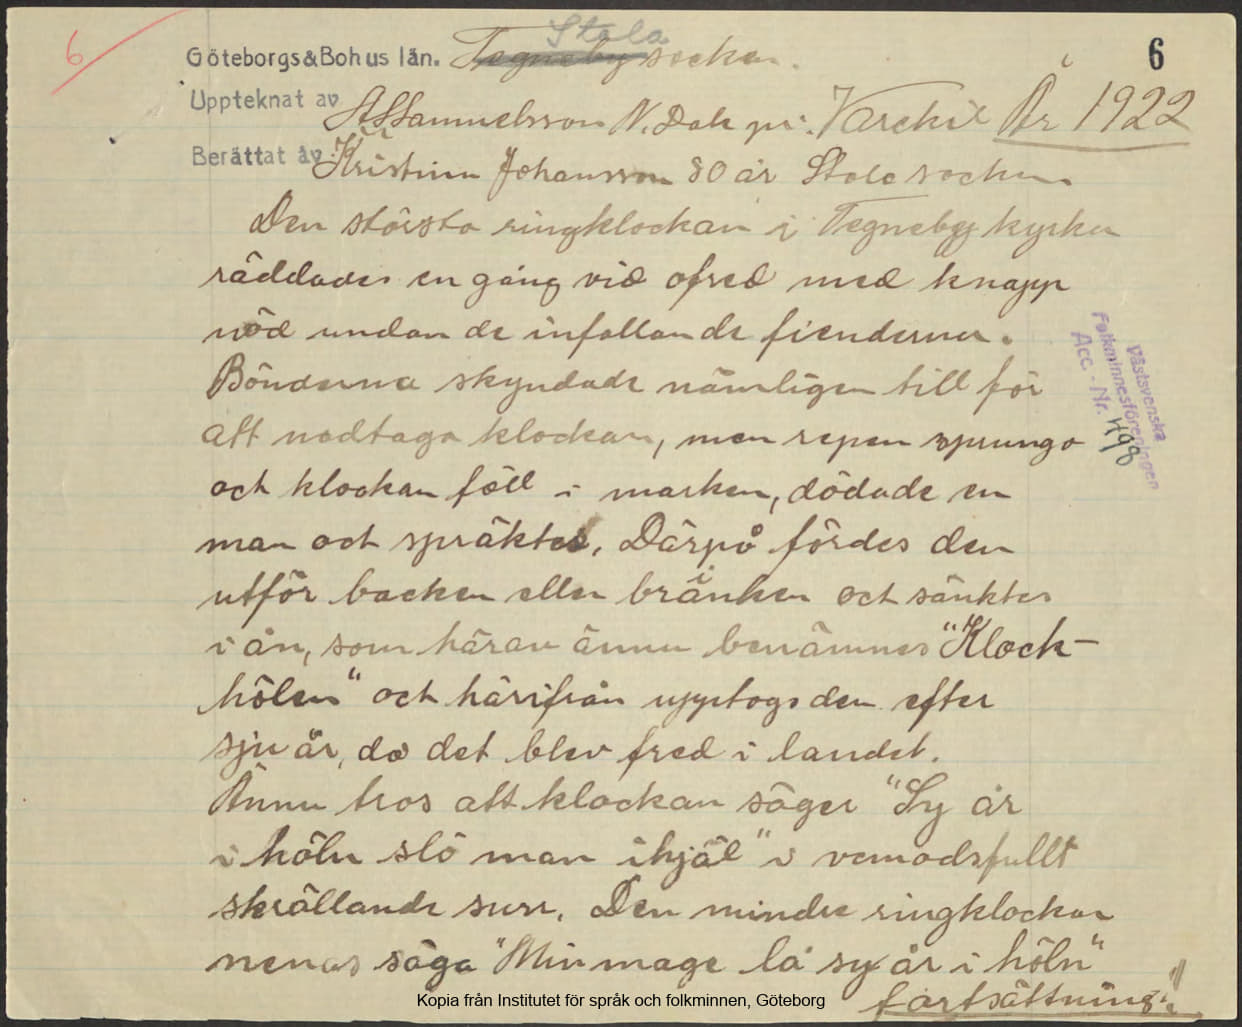 6
Stala
Göteborgs&Bohus län. Tegneby socken.
6
Uppteknat av A S Samuelsson N. Dal pr. Varekil År 1922
Berättat av Kristina Johansson 80 år Stala socken
Den största ringklockan i Tegneby kyrka
räddades en gång vid ofred med knapp
nöd undan de infallande fienderna.
Bönderna skyndade nämligen till för
att nedtaga klockan, men repen sprungo
och klockan föll i marken, dödade en
man och spräktes. Därpå fördes den
utför backen eller brinken och sänktes
i ån, som härav ännu benämnes "Klock-
hölen" och härifrån upptogs den efter
sju år, då det blev fred i landet.
Ännu tros att klockan säger "Sy år
i höln slö man ihjäl" i vemodsfullt
skrällande surr. Den mindre ringklockan
menas säga "Min mage lå sy år i höln"
fortsättning
Västsvenska
Folkminnesföreningen
Acc.-Nr. 498
Kopia från Institutet för språk och folkminnen, Göteborg